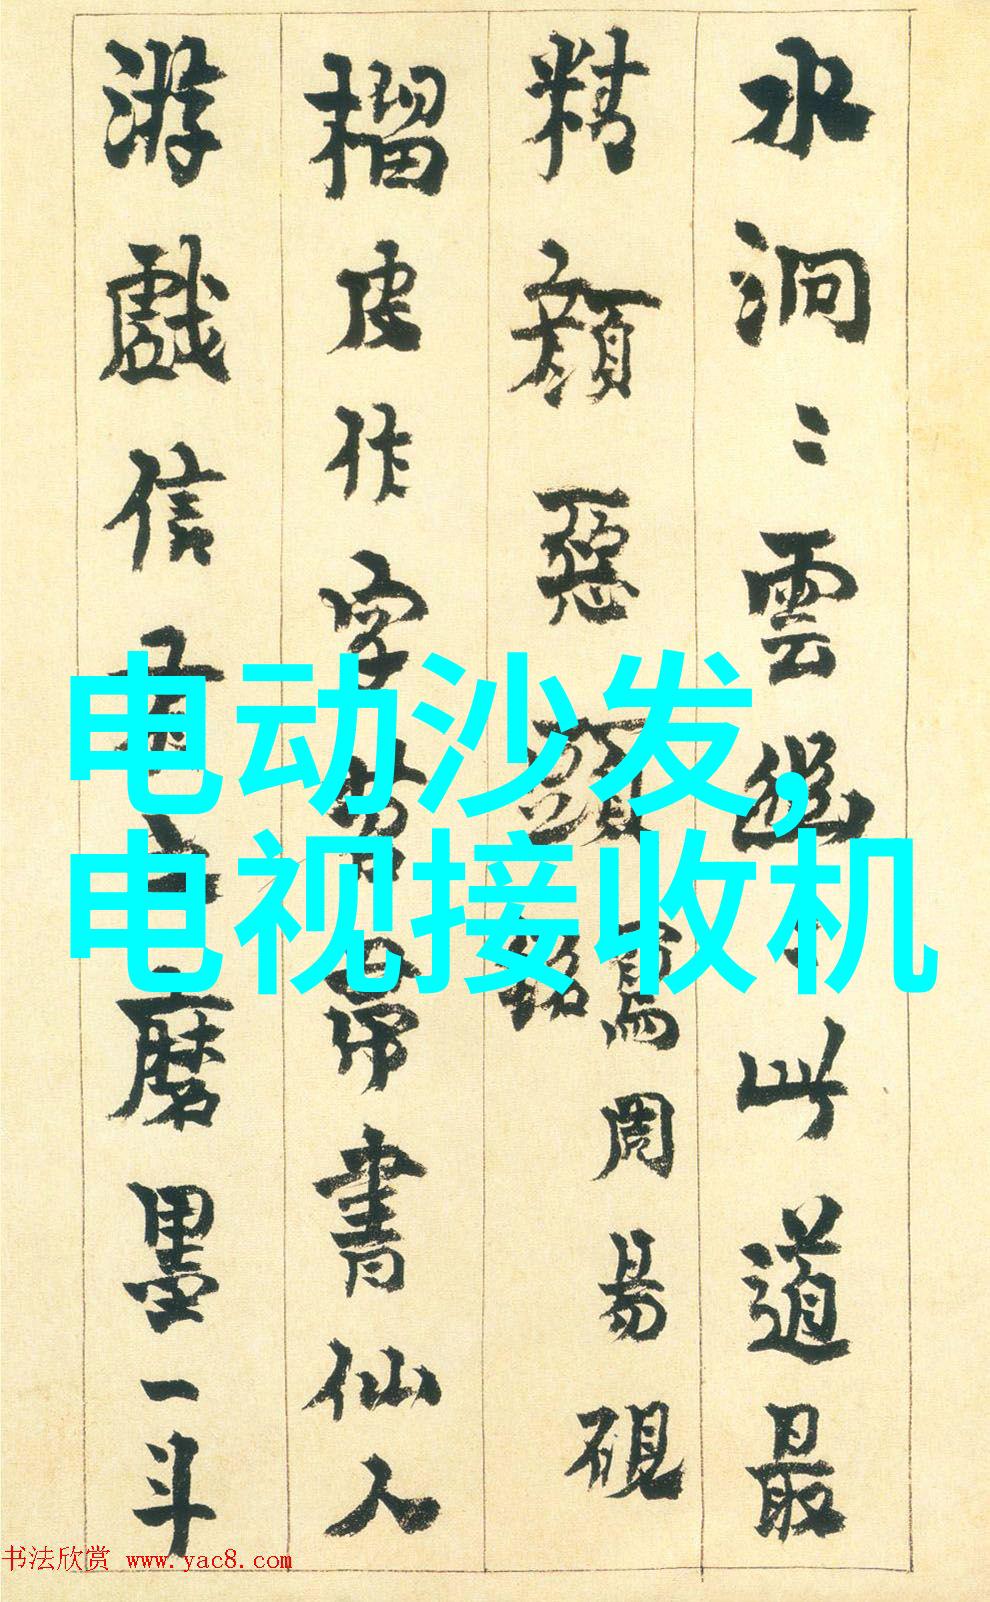 水洞〻雲此道最
精顏惡寫周易硯
榴皮作字帚書仙人
游戲信磨墨一斗
电动沙发,
电视接收机
书法欣赏 www.yac8.com